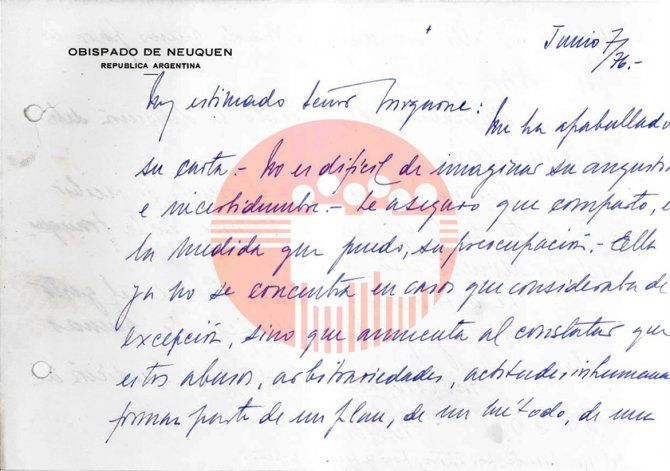 OBISPADO DE NEUQUEN
REPUBLICA ARGENTINA
Junio 7/76.-
Muy estimado Señor Mignone:
Me ha apabullado
su carta.- No es difícil de imaginar su angusti
e incertidumbre.- Le aseguro que comparto, e
la medida que puedo, su preocupación.- Ella
ya no se concentra en casos que consideraba de
excepción, sino que aumenta al constatar que
estos abusos, arbitrariedades, actitudes inhumana
forman parte de un plan, de un método, de una